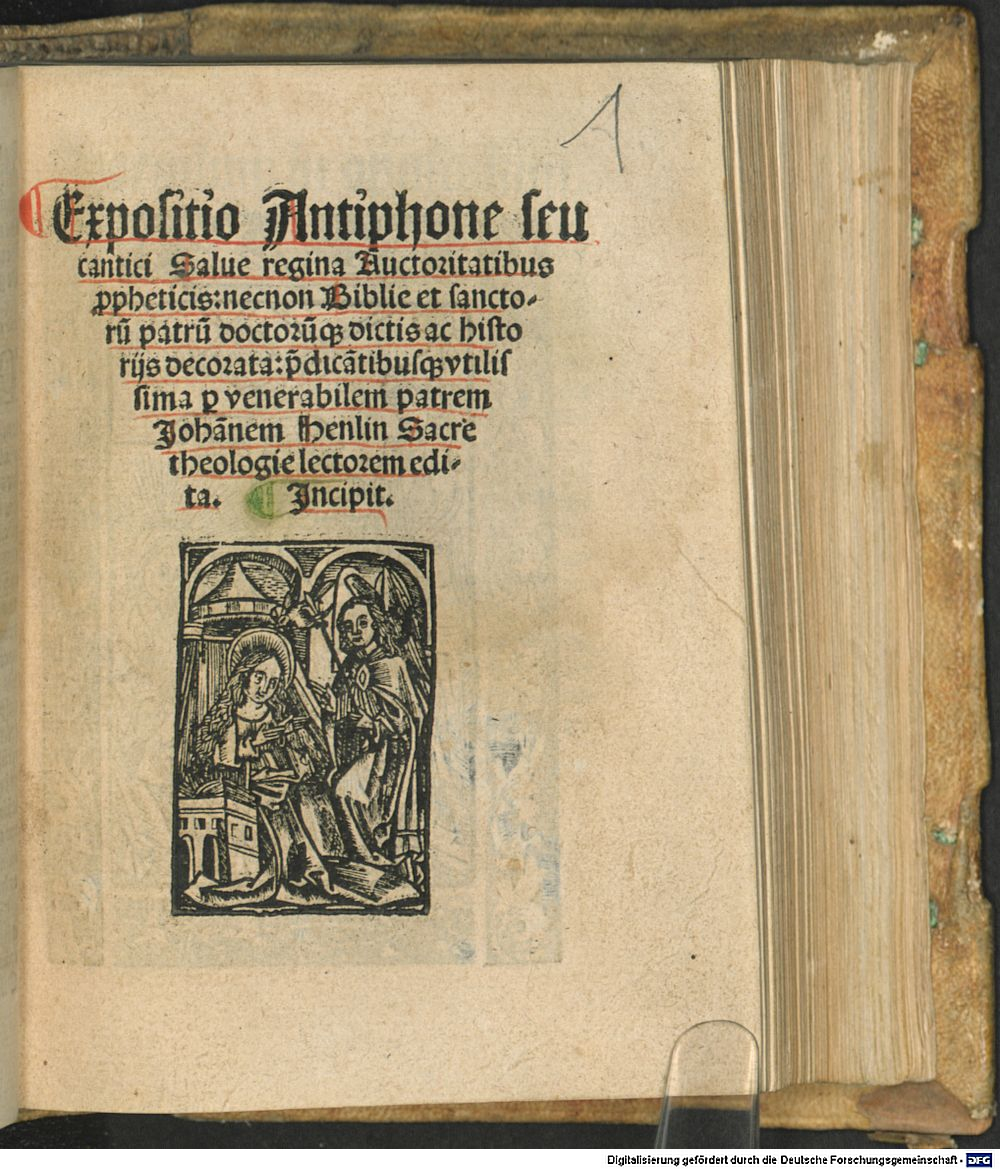 1
Expoſitio Antiphone ſeu
cantici Salue regina Auctoritatibus
ꝓpheticis: necnon Biblie et ſancto⸗
rū patrū doctorūqꝫ dictis ac hiſto
rijs decorata: p̄dicātibuſqꝫ vtiliſ
ſima ꝑ venerabilem patrem
Johānem Henlin Sacre
theologie lectorem edi⸗
ta. ¶ Incipit.
Digitalisierung gefördert durch die Deutsche Forschungsgemeinschaft - DFG